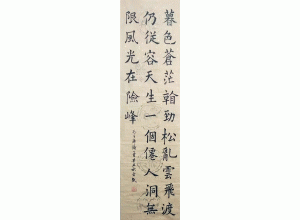 暮色蒼茫勁松亂雲飛渡
仍從容天生一個僊人洞無
限風光在險峰